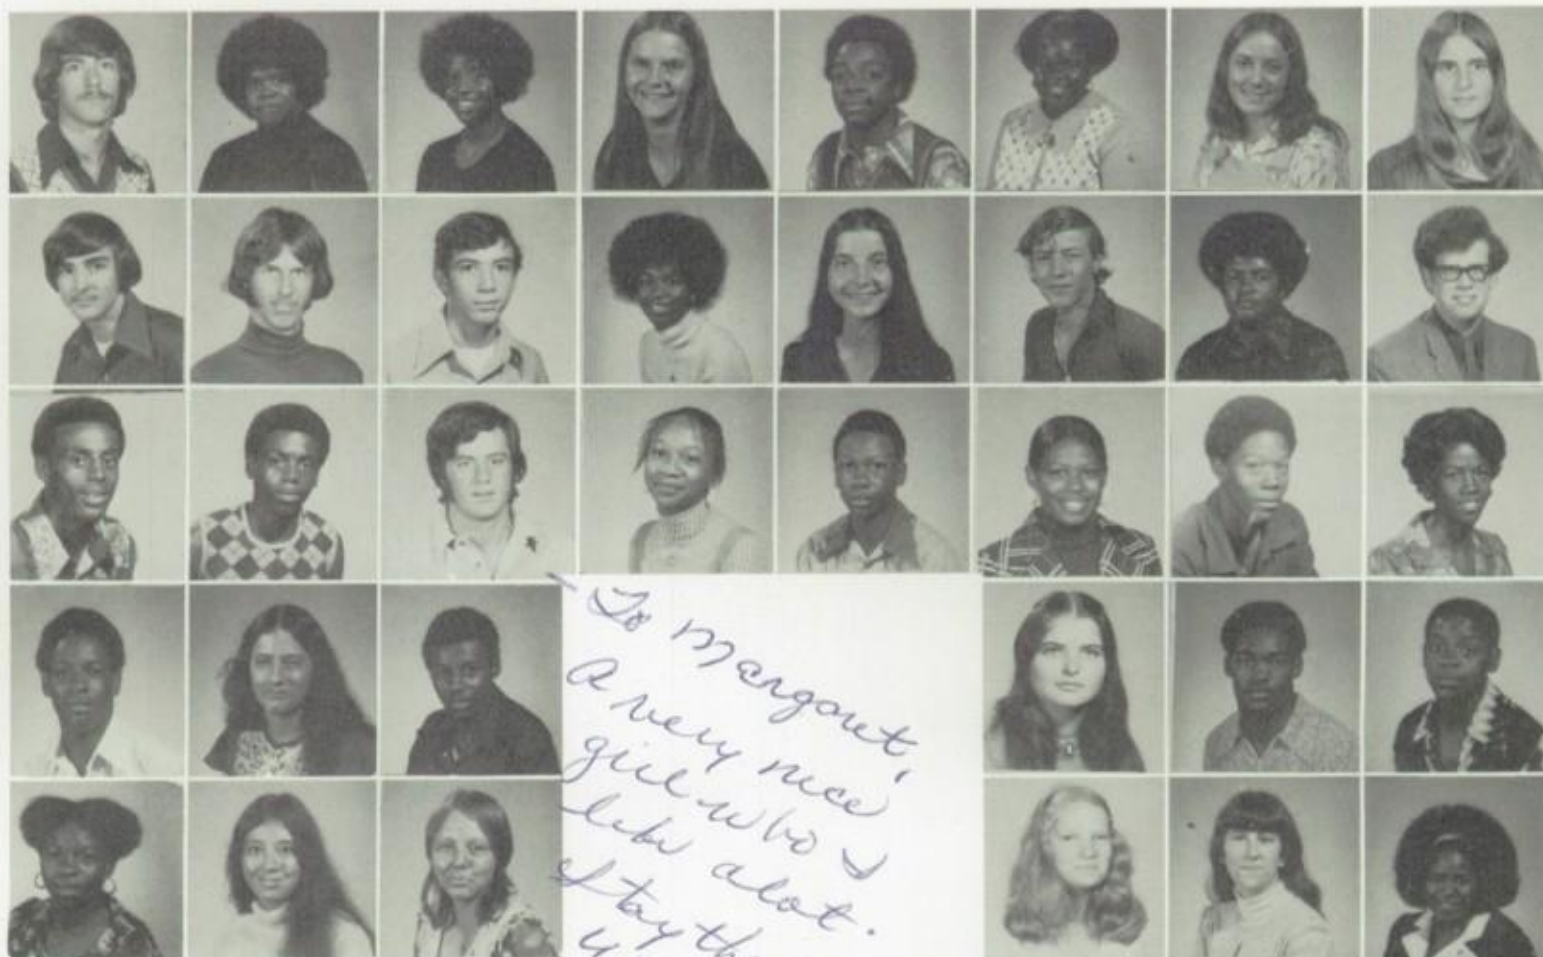 - To Margaret,
A very nice
girl who I
like alot.
Stay th